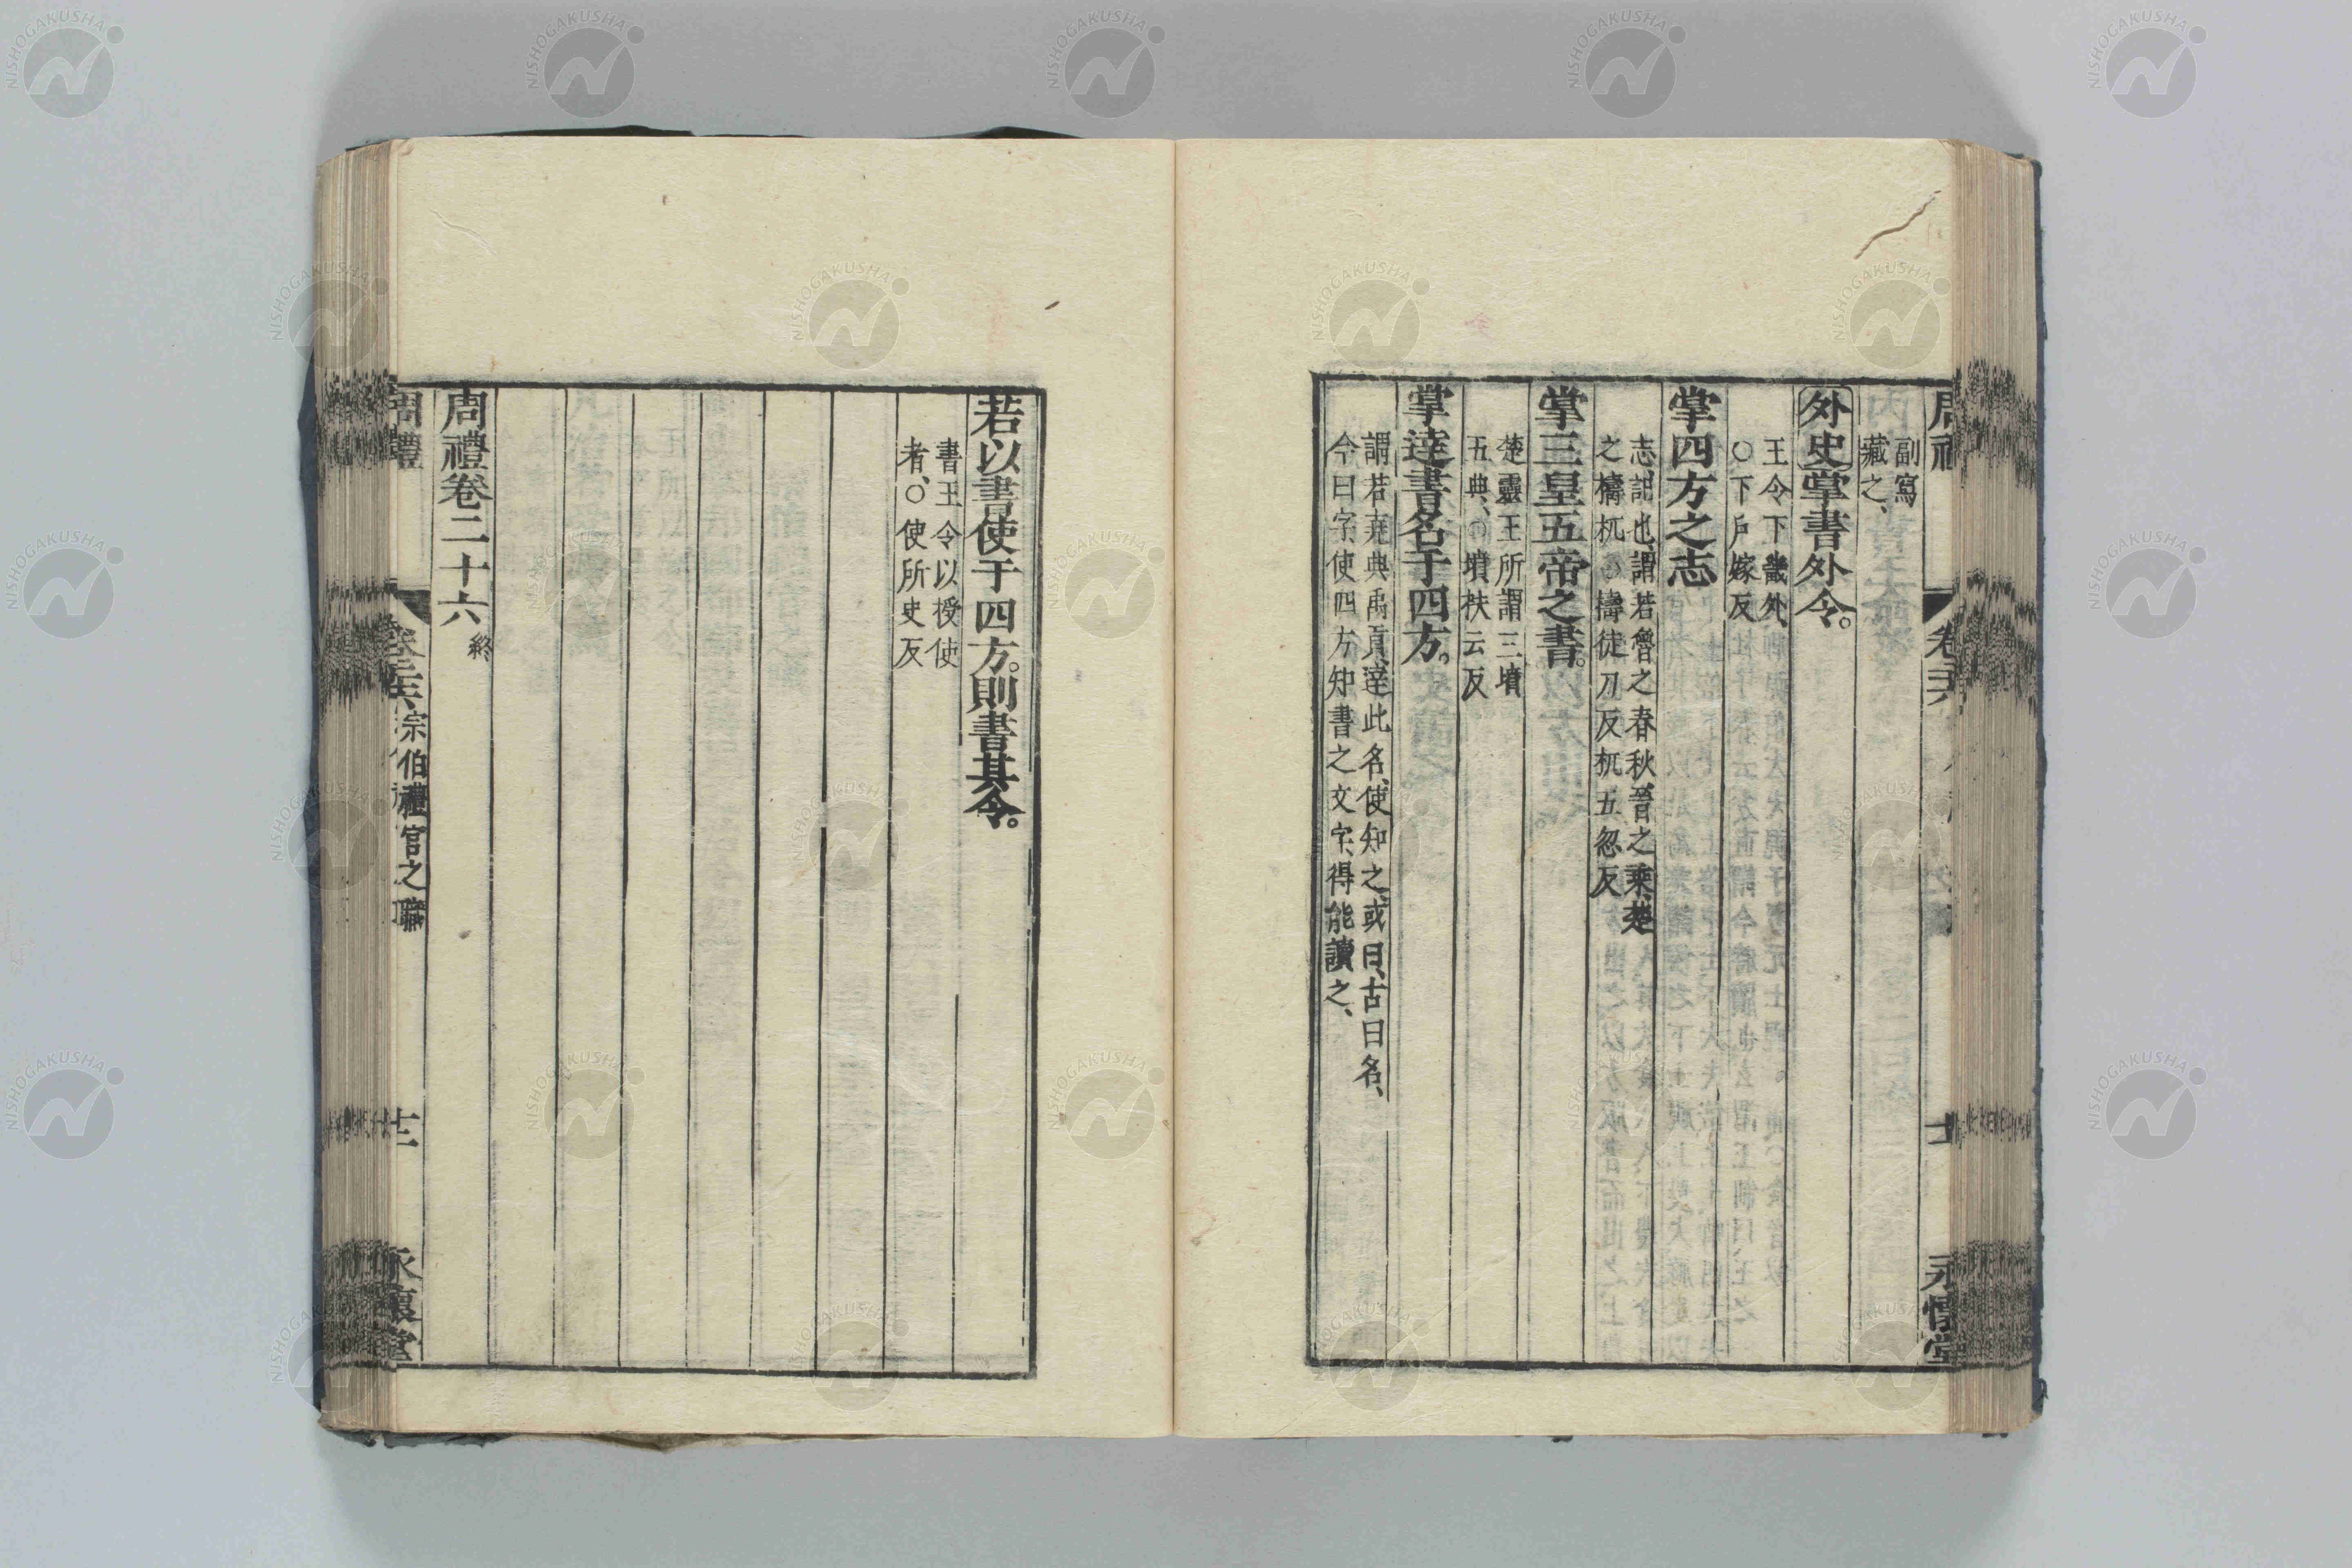 副寫
藏之、
外史掌書外令。
王令下畿外、
○下戶嫁反
掌四方之志
志記也、謂若魯之春秋、晉之乘、楚
之檮杌○檮徒刀反杌五忽反
掌三皇五帝之書。
楚靈王所謂三墳
五典、○墳扶云反
掌達書名于四方。
謂若堯典禹貢、達此名、使知之、或曰、古曰名、
今曰字、使四方知書之文字、得能讀之、
永懷堂
若以書使于四方。則書其令。
書王令以授使
者、○使所吏反
周禮卷二十六終
周禮
卷二十六
宗伯禮官之職
十二
永懷堂
NISHOGAKUSHA